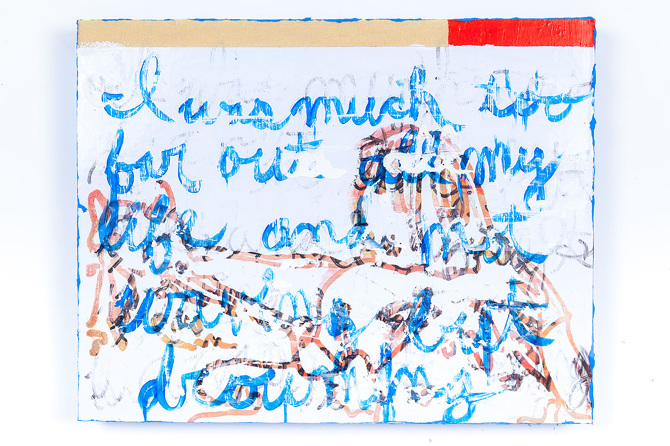 I was much too
far out all my
life and not
waving but
drowning